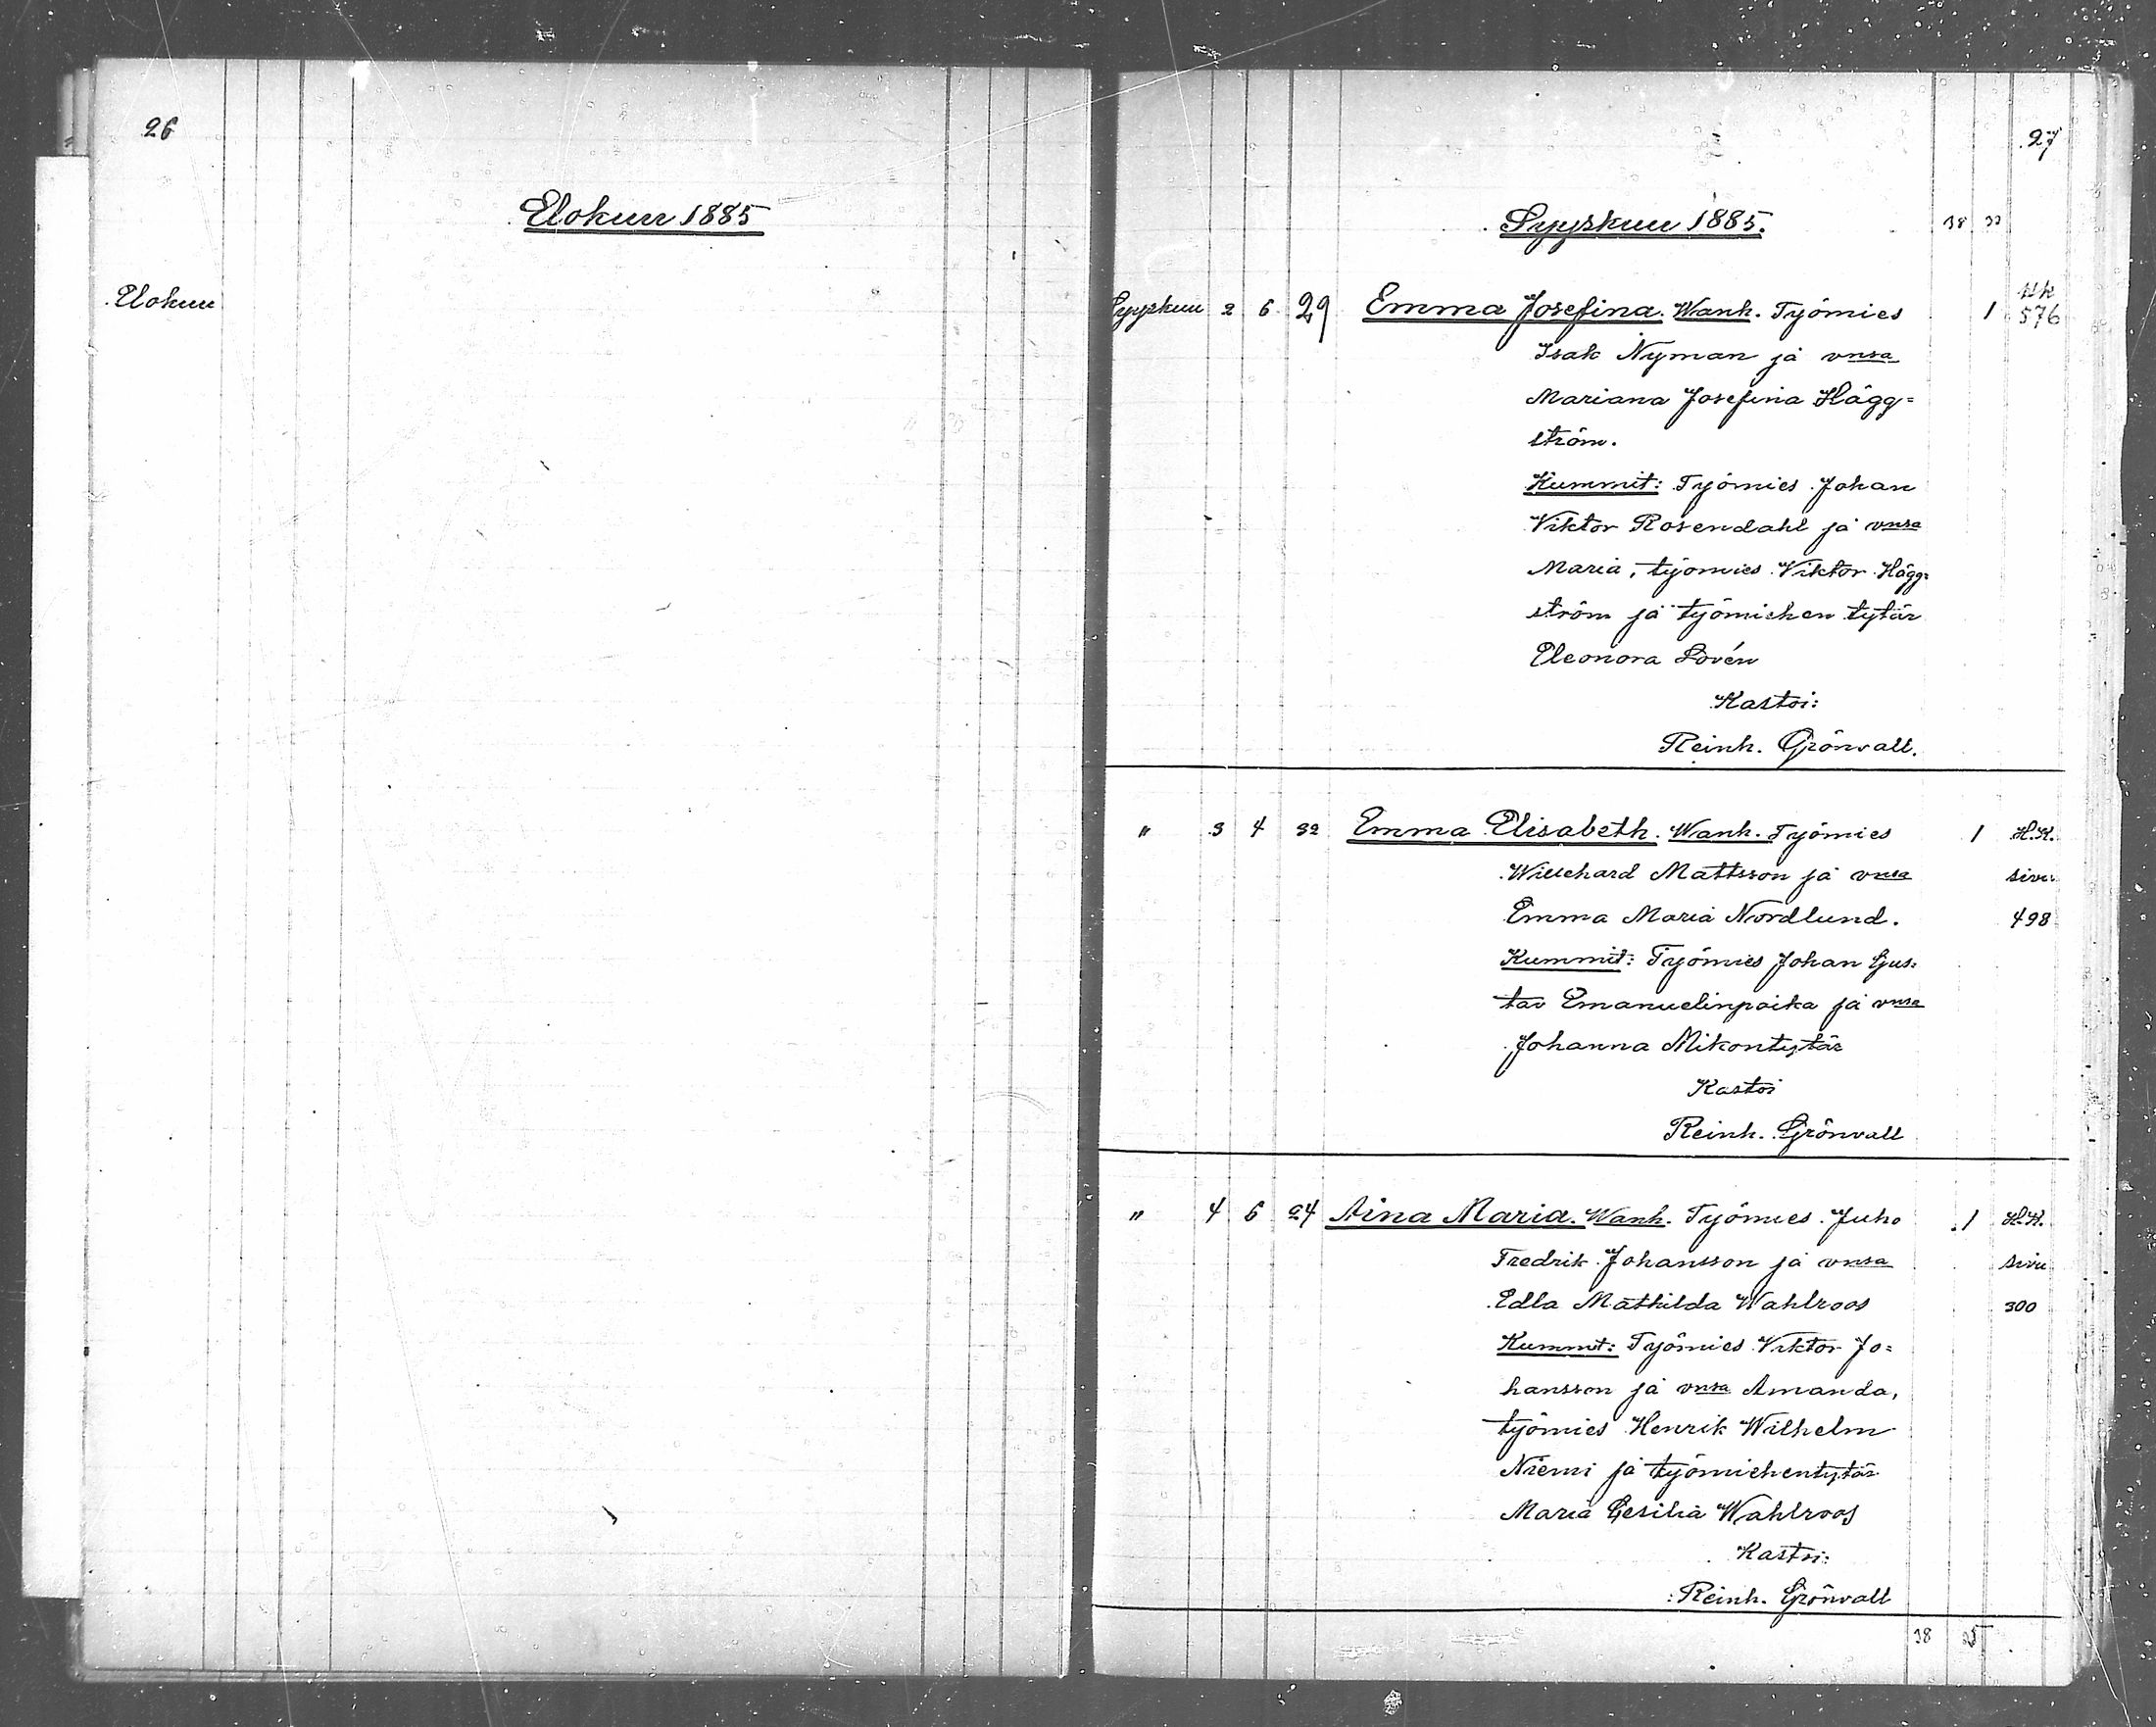 26
Elokuu 1885
Elokuu
27
Syyskuu 1885.
38
Syyskuu 2 6 29 Emma Josefina. Wanh. Työmies 1 576
Isak Nyman ja vmsa
Mariana Josefina Hägg=
ström.
Kummit: Työmies Johan
Viktor Rosendahl ja vmsa
Maria, työmies Viktor Hägg=
ström ja työmiehen tytär
Eleonora Lovén
Kastoi:
Reinh. Grönvall.
" 3 4 32 Emma Elisabeth. Wanh. Työmies 1 H.K.
Willehard Mattsson ja vmsa sivu
Emma Maria Nordlund. 498
Kummit: Työmies Johan Gus=
tav Emanuelinpoika ja vmsa
Johanna Mikontytär
Kastoi
Reinh. Grönvall
" 4 6 24 Aina Maria. Wanh. Työmies Juho 1 H.K.
Fredrik Johansson ja vmsa sivu
Edla Mathilda Wahlroos 300
Kummit: Työmies Viktor Jo=
hansson ja vmsa Amanda,
työmies Henrik Wilhelm
Niemi ja työmiehentytär
Maria Cesilia Wahlroos
Kastoi:
Reinh. Grönvall
38